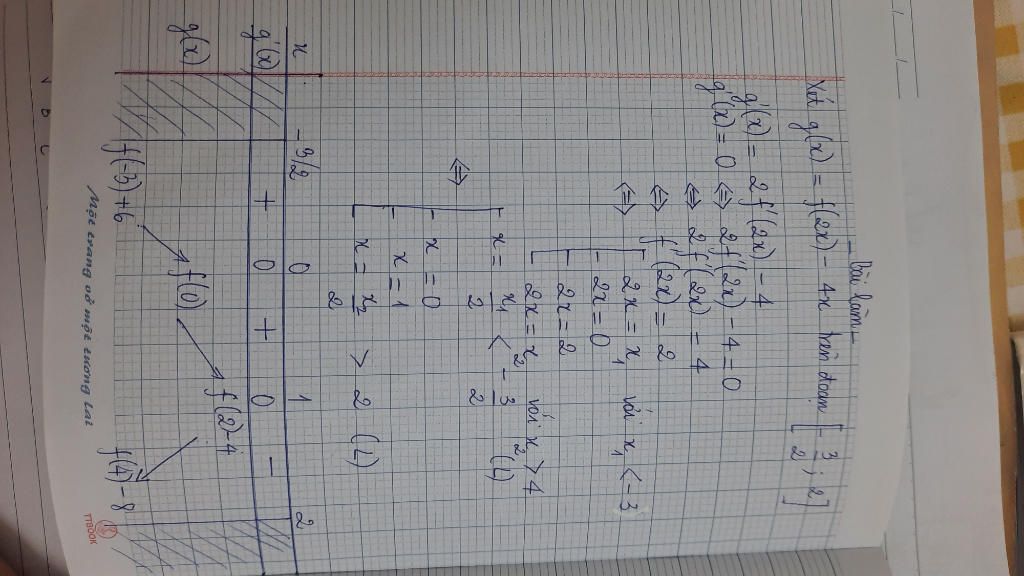 _ Bài làm _
Xét g(x) = f(2x) - 4x trên đoạn [-3/2; 2]
g'(x) = 2f'(2x) - 4
g'(x) = 0 ⇔ 2f'(2x) - 4 = 0
⇔ 2f'(2x) = 4
⇔ f'(2x) = 2
⇔ [ 2x = x₁ với x₁ < -3
2x = 0
2x = 2
2x = x₂ với x₂ > 4
⇔ [ x = x₁/2 < -3/2 (L)
x = 0
x = 1
x = x₂/2 > 2 (L)
x -3/2 0 1 2
g'(x) + 0 + 0 -
g(x) f(-3)+6 f(0) f(2)-4 f(4)-8
Một trang vở một tương lai
TTBOOK